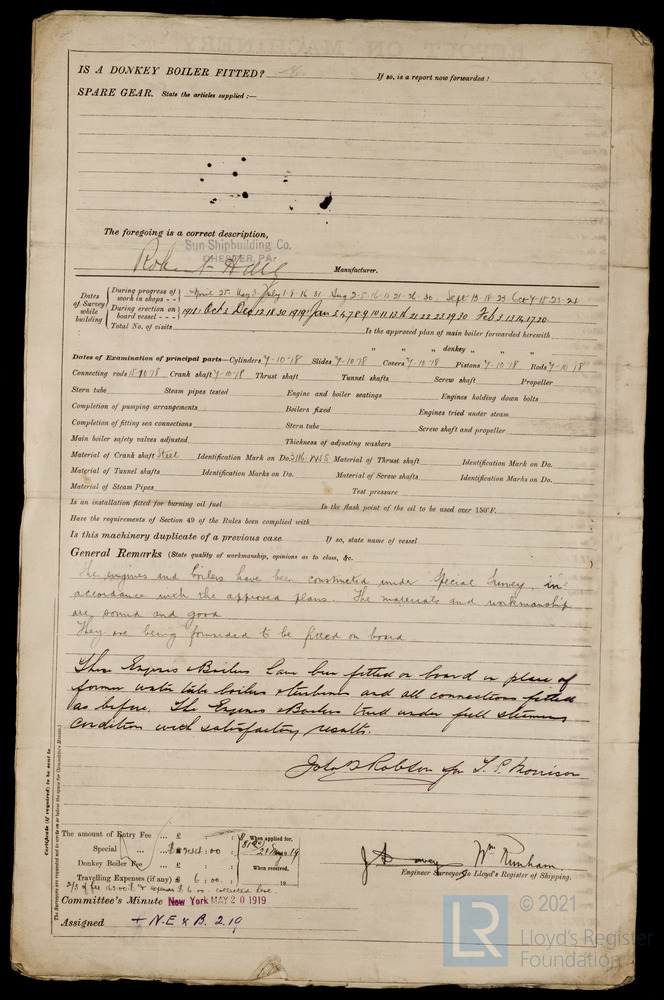 IS A DONKEY BOILER FITTED? No If so, is a report now forwarded?
SPARE GEAR. State the articles supplied :—
The foregoing is a correct description,
Sun Shipbuilding Co.
CHESTER, PA.
Manufacturer.
Dates of Survey while building
During progress of work in shops - - April 25 May 3 July 1. 9. 16. 31 Aug 2. 5. 16. 21. 26. 30 Sept 13. 18. 23 Oct 7. 15. 23. 24
During erection on board vessel - - 1918: Oct Dec 12 18 30 1919 Jan Feb 3. 13. 14. 17. 20.
Total No. of visits
Is the approved plan of main boiler forwarded herewith
" " " donkey " " "
Dates of Examination of principal parts—Cylinders 7-10-18 Slides 7-10-18 Covers 7-10-18 Pistons 7-10-18 Rods 7-10-18
Connecting rods Crank shaft 7-10-18 Thrust shaft Tunnel shafts Screw shaft Propeller
Stern tube Steam pipes tested Engine and boiler seatings Engines holding down bolts
Completion of pumping arrangements Boilers fixed Engines tried under steam
Completion of fitting sea connections Stern tube Screw shaft and propeller
Main boiler safety valves adjusted Thickness of adjusting washers
Material of Crank shaft Steel Identification Mark on Do. 3116 Material of Thrust shaft Identification Mark on Do.
Material of Tunnel shafts Identification Marks on Do. Material of Screw shafts Identification Marks on Do.
Material of Steam Pipes Test pressure
Is an installation fitted for burning oil fuel Is the flash point of the oil to be used over 150°F.
Have the requirements of Section 49 of the Rules been complied with
Is this machinery duplicate of a previous case If so, state name of vessel
General Remarks (State quality of workmanship, opinions as to class, &c.
The engines and boilers have been constructed under Special Survey in
accordance with the approved plans. The materials and workmanship
are sound and good
They are being forwarded to be fitted on board
These Engines & Boilers have been fitted on board in place of
former water tube boilers & turbines and all connections fitted
as before. The Engines & Boilers tried under full steaming
condition with satisfactory results.
John D Robson for L. P. Morrison
Certificate (if required) to be sent to
The Surveyors are requested not to write on or below the space for Committee's Minute.
The amount of Entry Fee ... £ : : When applied for,
Special ... : 00 21 May 19
Donkey Boiler Fee ... £ : : When received,
Travelling Expenses (if any) £ 6 : 00 : 19
2/3 of fee 163.00 $ & expenses $ 6.00 collected here.
Engineer Surveyor to Lloyd's Register of Shipping.
Committee's Minute New York MAY 20 1919
Assigned + N.E & B. 2.19
LR © 2021
Lloyd's Register
Foundation